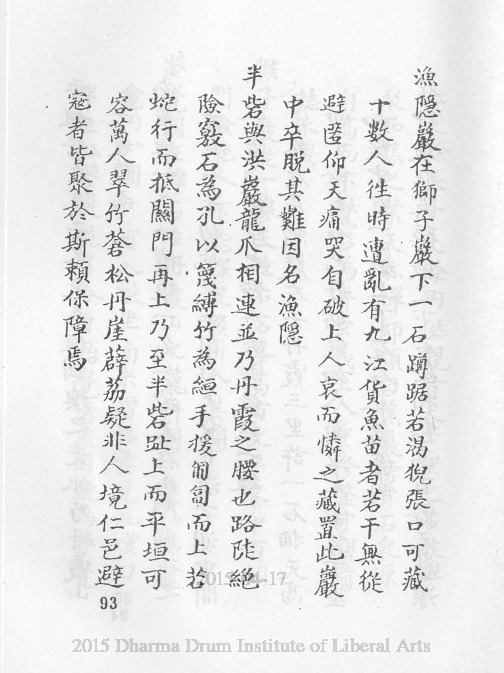 漁隱巖在獅子巖下一石蹲踞若渴猊張口可藏
十數人徃時遭亂有九江貨魚苗者若干無從
避匿仰天痛哭自破上人哀而憐之藏置此巖
中卒脫其難因名漁隱
半砦與洪巖龍爪相連並乃丹霞之腰也路陡絕
險竅石為孔以篾縛竹為絙手援匍匐而上若
蛇行而抵關門再上乃至半砦趾上而平垣可
容萬人翠竹蒼松丹崖薜荔疑非人境仁邑避
寇者皆聚於斯賴保障焉
93
2015 Dharma Drum Institute of Liberal Arts